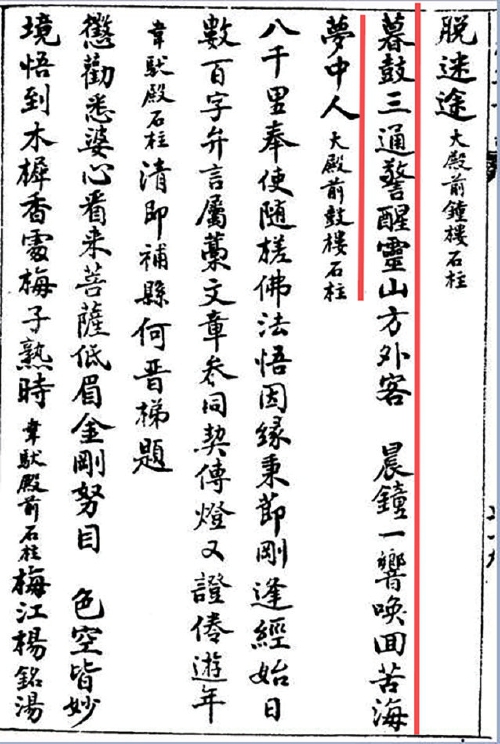 脫迷途 大殿前鐘樓石柱
暮鼓三通警醒靈山方外客 晨鐘一響喚回苦海
夢中人 大殿前鼓樓石柱
八千里奉使隨槎佛法悟因緣秉節剛逢經始日
數百字弁言屬藁文章參同契傳燈又證倦遊年
韋馱殿石柱 清即補縣何晉梯題
懲勸悉婆心看来菩薩低眉金剛努目 色空皆妙
境悟到木樨香處梅子熟時 韋馱殿前石柱 梅江楊銘湯